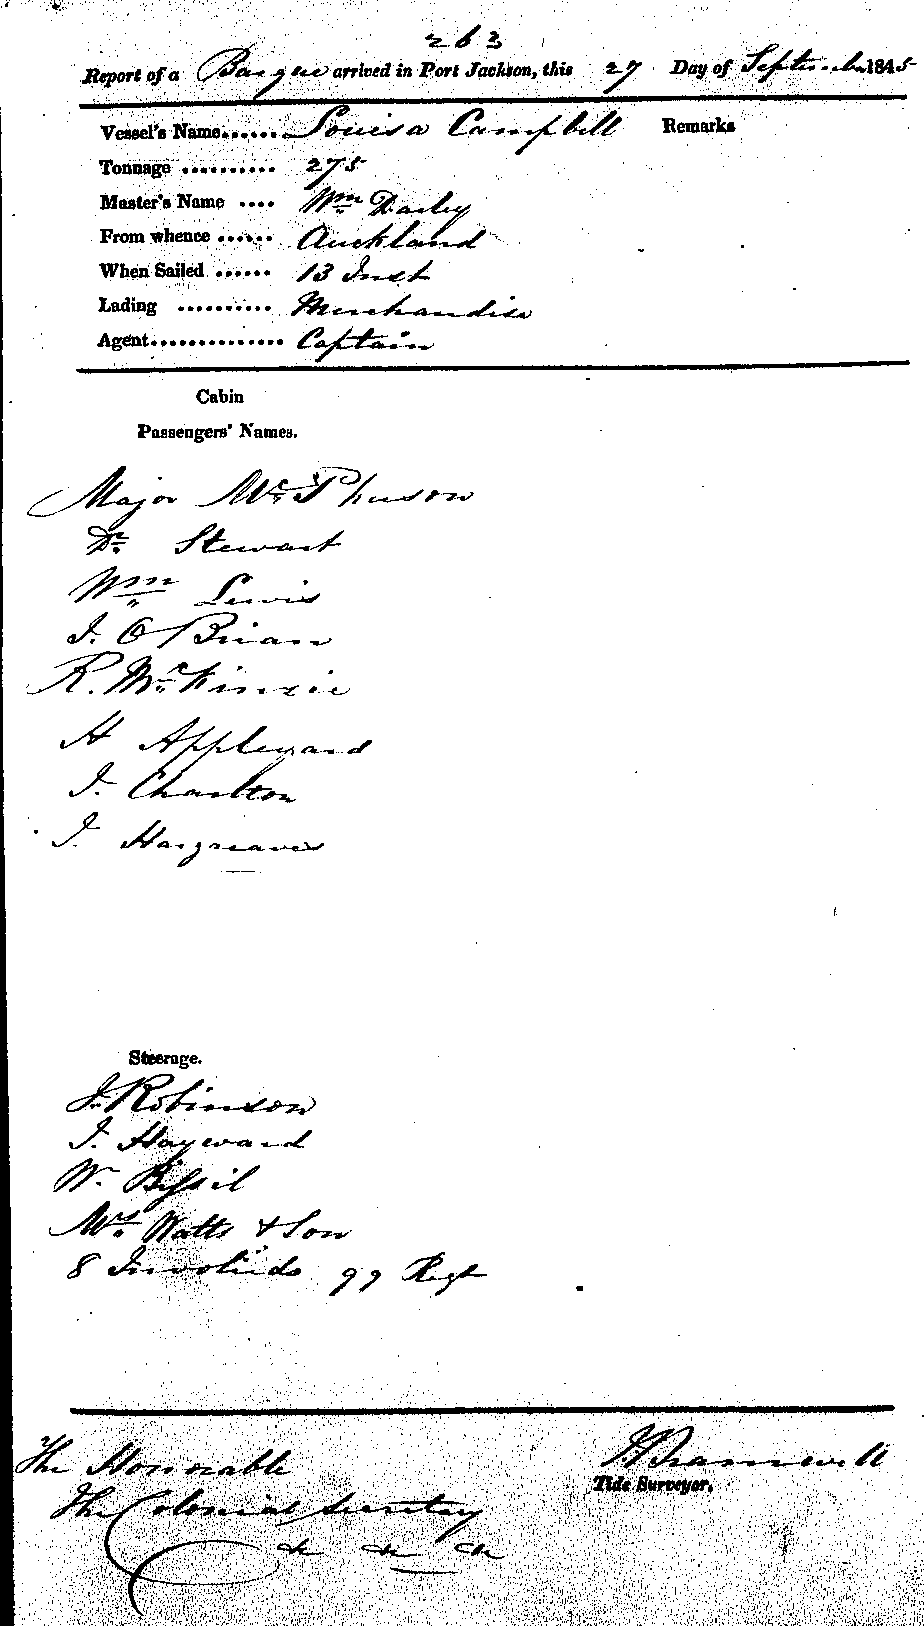 263
Report of a Barque arrived in Port Jackson, this 27 Day of September 1845
Vessel's Name....... Louisa Campbell Remarks
Tonnage .......... 275
Master's Name .... Wm Darley
From whence ...... Auckland
When Sailed ...... 13 Inst
Lading .......... Merchandise
Agent.............. Captain
Cabin
Passengers' Names.
Major McPherson
Dr. Stewart
Wm Lewis
J. O'Brian
R. McKinzie
H Appleyard
J. Charlton
J. Hargreaves
Steerage.
J. Robinson
J. Hayward
W. Bissil
Mrs. Watts & Son
8 Invalids 99 Regt
The Honorable
The Colonial Secretary
&c &c &c
Bramwell
Tide Surveyor.